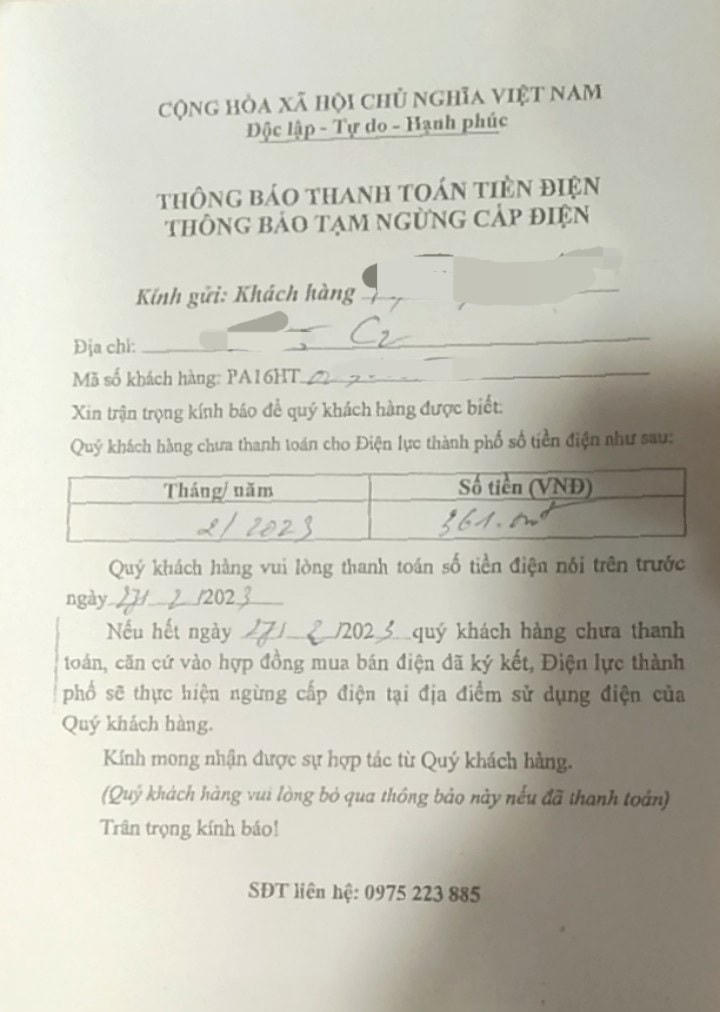 CỘNG HÒA XÃ HỘI CHỦ NGHĨA VIỆT NAM
Độc lập - Tự do - Hạnh phúc
THÔNG BÁO THANH TOÁN TIỀN ĐIỆN
THÔNG BÁO TẠM NGỪNG CẤP ĐIỆN
Kính gửi: Khách hàng
Địa chỉ: C2
Mã số khách hàng: PA16HT
Xin trận trọng kính báo để quý khách hàng được biết:
Quý khách hàng chưa thanh toán cho Điện lực thành phố số tiền điện như sau:
Tháng/ năm Số tiền (VNĐ)
2/2023 361.
Quý khách hàng vui lòng thanh toán số tiền điện nói trên trước
ngày 27/2/2023
Nếu hết ngày 27/2/2023 quý khách hàng chưa thanh
toán, căn cứ vào hợp đồng mua bán điện đã ký kết, Điện lực thành
phố sẽ thực hiện ngừng cấp điện tại địa điểm sử dụng điện của
Quý khách hàng.
Kính mong nhận được sự hợp tác từ Quý khách hàng.
(Quý khách hàng vui lòng bỏ qua thông báo này nếu đã thanh toán)
Trân trọng kính báo!
SĐT liên hệ: 0975 223 885